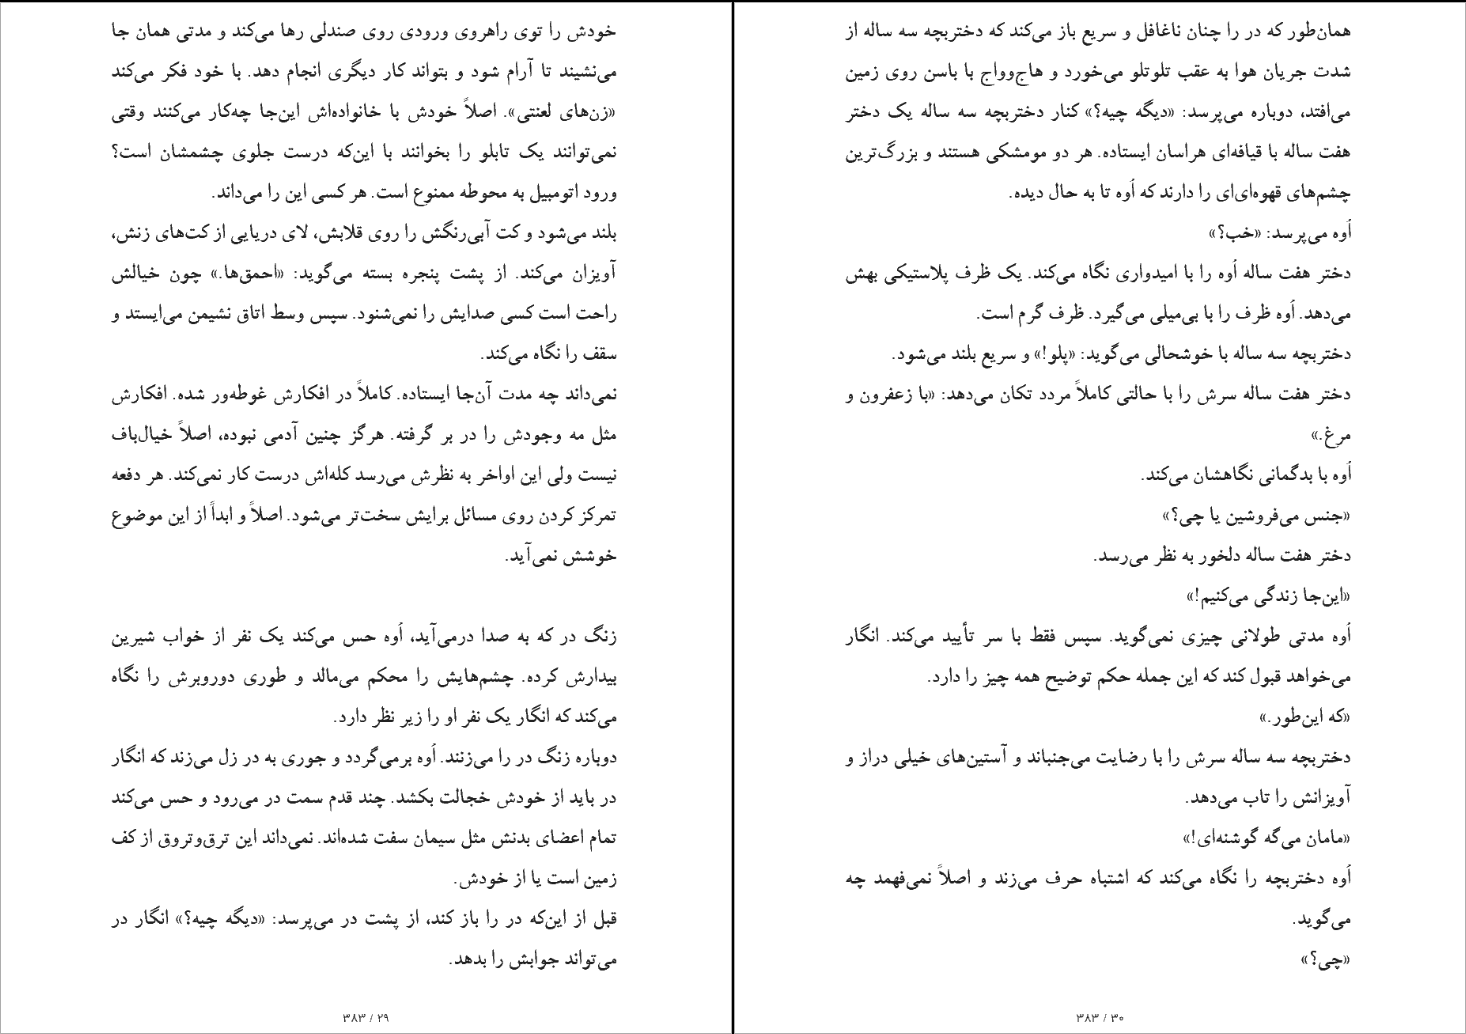 خودش را توی راهروی ورودی روی صندلی رها می‌کند و مدتی همان جا
می‌نشیند تا آرام شود و بتواند کار دیگری انجام دهد. با خود فکر می‌کند
«زن‌های لعنتی». اصلاً خودش با خانواده‌اش این‌جا چه‌کار می‌کنند وقتی
نمی‌توانند یک تابلو را بخوانند با این‌که درست جلوی چشمشان است؟
ورود اتومبیل به محوطه ممنوع است. هر کسی این را می‌داند.
بلند می‌شود و کت آبی‌رنگش را روی قلابش، لای دریایی از کت‌های زنش،
آویزان می‌کند. از پشت پنجره بسته می‌گوید: «احمق‌ها.» چون خیالش
راحت است کسی صدایش را نمی‌شنود. سپس وسط اتاق نشیمن می‌ایستد و
سقف را نگاه می‌کند.
نمی‌داند چه مدت آن‌جا ایستاده. کاملاً در افکارش غوطه‌ور شده. افکارش
مثل مه وجودش را در بر گرفته. هرگز چنین آدمی نبوده، اصلاً خیال‌باف
نیست ولی این اواخر به نظرش می‌رسد کله‌اش درست کار نمی‌کند. هر دفعه
تمرکز کردن روی مسائل برایش سخت‌تر می‌شود. اصلاً و ابداً از این موضوع
خوشش نمی‌آید.
زنگ در که به صدا درمی‌آید، اُوه حس می‌کند یک نفر از خواب شیرین
بیدارش کرده. چشم‌هایش را محکم می‌مالد و طوری دوروبرش را نگاه
می‌کند که انگار یک نفر او را زیر نظر دارد.
دوباره زنگ در را می‌زنند. اُوه برمی‌گردد و جوری به در زل می‌زند که انگار
در باید از خودش خجالت بکشد. چند قدم سمت در می‌رود و حس می‌کند
تمام اعضای بدنش مثل سیمان سفت شده‌اند. نمی‌داند این ترق‌وتروق از کف
زمین است یا از خودش.
قبل از این‌که در را باز کند، از پشت در می‌پرسد: «دیگه چیه؟» انگار در
می‌تواند جوابش را بدهد.
۲۹ / ۳۸۳
همان‌طور که در را چنان ناغافل و سریع باز می‌کند که دختربچه سه ساله از
شدت جریان هوا به عقب تلوتلو می‌خورد و هاج‌وواج با باسن روی زمین
می‌افتد، دوباره می‌پرسد: «دیگه چیه؟» کنار دختربچه سه ساله یک دختر
هفت ساله با قیافه‌ای هراسان ایستاده. هر دو مومشکی هستند و بزرگ‌ترین
چشم‌های قهوه‌ای‌ای را دارند که اُوه تا به حال دیده.
اُوه می‌پرسد: «خب؟»
دختر هفت ساله اُوه را با امیدواری نگاه می‌کند. یک ظرف پلاستیکی بهش
می‌دهد. اُوه ظرف را با بی‌میلی می‌گیرد. ظرف گرم است.
دختربچه سه ساله با خوشحالی می‌گوید: «پلو!» و سریع بلند می‌شود.
دختر هفت ساله سرش را با حالتی کاملاً مردد تکان می‌دهد: «با زعفرون و
مرغ.»
اُوه با بدگمانی نگاهشان می‌کند.
«جنس می‌فروشین یا چی؟»
دختر هفت ساله دلخور به نظر می‌رسد.
«این‌جا زندگی می‌کنیم!»
اُوه مدتی طولانی چیزی نمی‌گوید. سپس فقط با سر تأیید می‌کند. انگار
می‌خواهد قبول کند که این جمله حکم توضیح همه چیز را دارد.
«که این‌طور.»
دختربچه سه ساله سرش را با رضایت می‌جنباند و آستین‌های خیلی دراز و
آویزانش را تاب می‌دهد.
«مامان می‌گه گوشنه‌ای!»
اُوه دختربچه را نگاه می‌کند که اشتباه حرف می‌زند و اصلاً نمی‌فهمد چه
می‌گوید.
«چی؟»
۳۰ / ۳۸۳